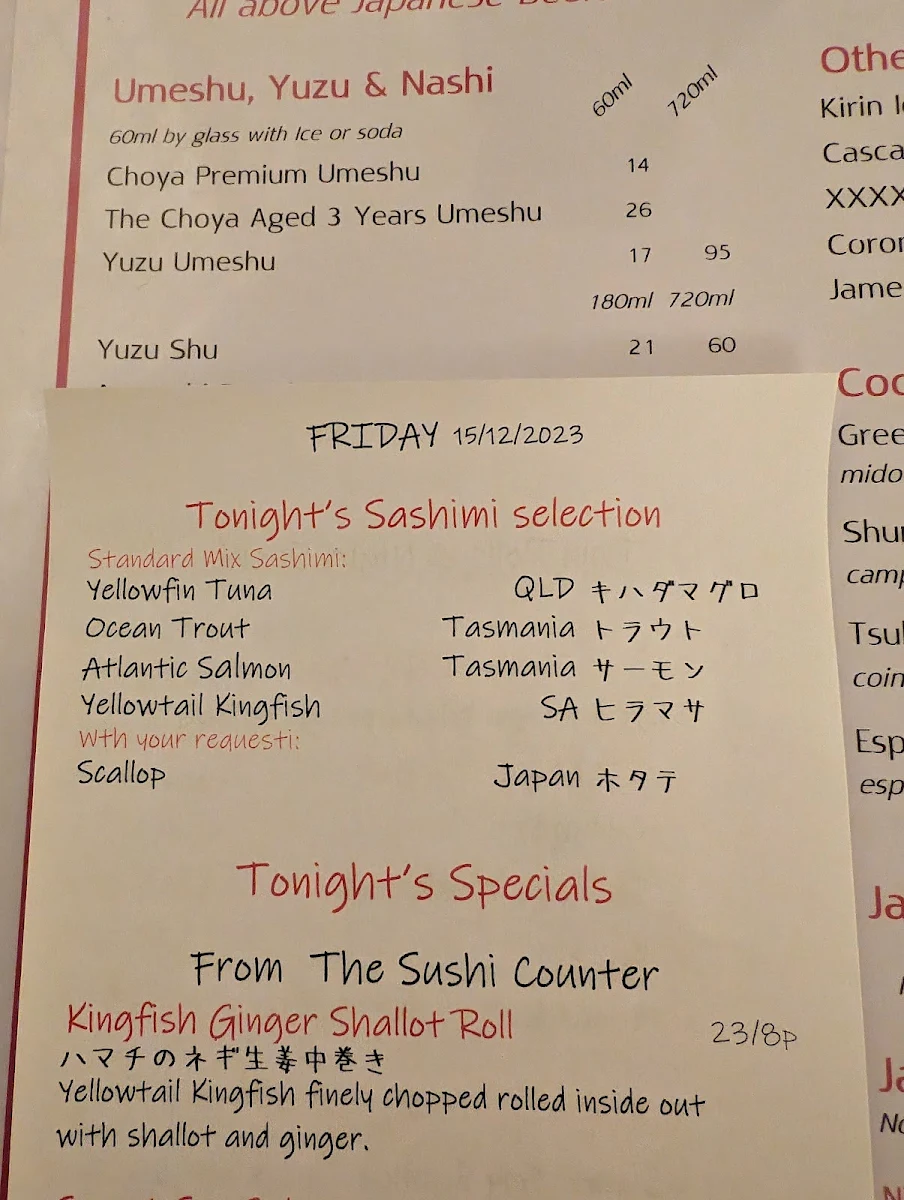 All above Japanese
Umeshu, Yuzu & Nashi
60ml 720ml
60ml by glass with Ice or soda
Choya Premium Umeshu 14
The Choya Aged 3 Years Umeshu 26
Yuzu Umeshu 17 95
180ml 720ml
Yuzu Shu 21 60
Othe
Kirin I
Casca
XXXX
Coror
Jame
Coc
Gree
mido
Shu
camp
Tsu
coin
Esp
esp
Ja
Ja
No
FRIDAY 15/12/2023
Tonight's Sashimi selection
Standard Mix Sashimi:
Yellowfin Tuna QLD キハダマグロ
Ocean Trout Tasmania トラウト
Atlantic Salmon Tasmania サーモン
Yellowtail Kingfish SA ヒラマサ
Wth your requesti:
Scallop Japan ホタテ
Tonight's Specials
From The Sushi Counter
Kingfish Ginger Shallot Roll 23/8p
ハマチのネギ生姜中巻き
Yellowtail Kingfish finely chopped rolled inside out
with shallot and ginger.